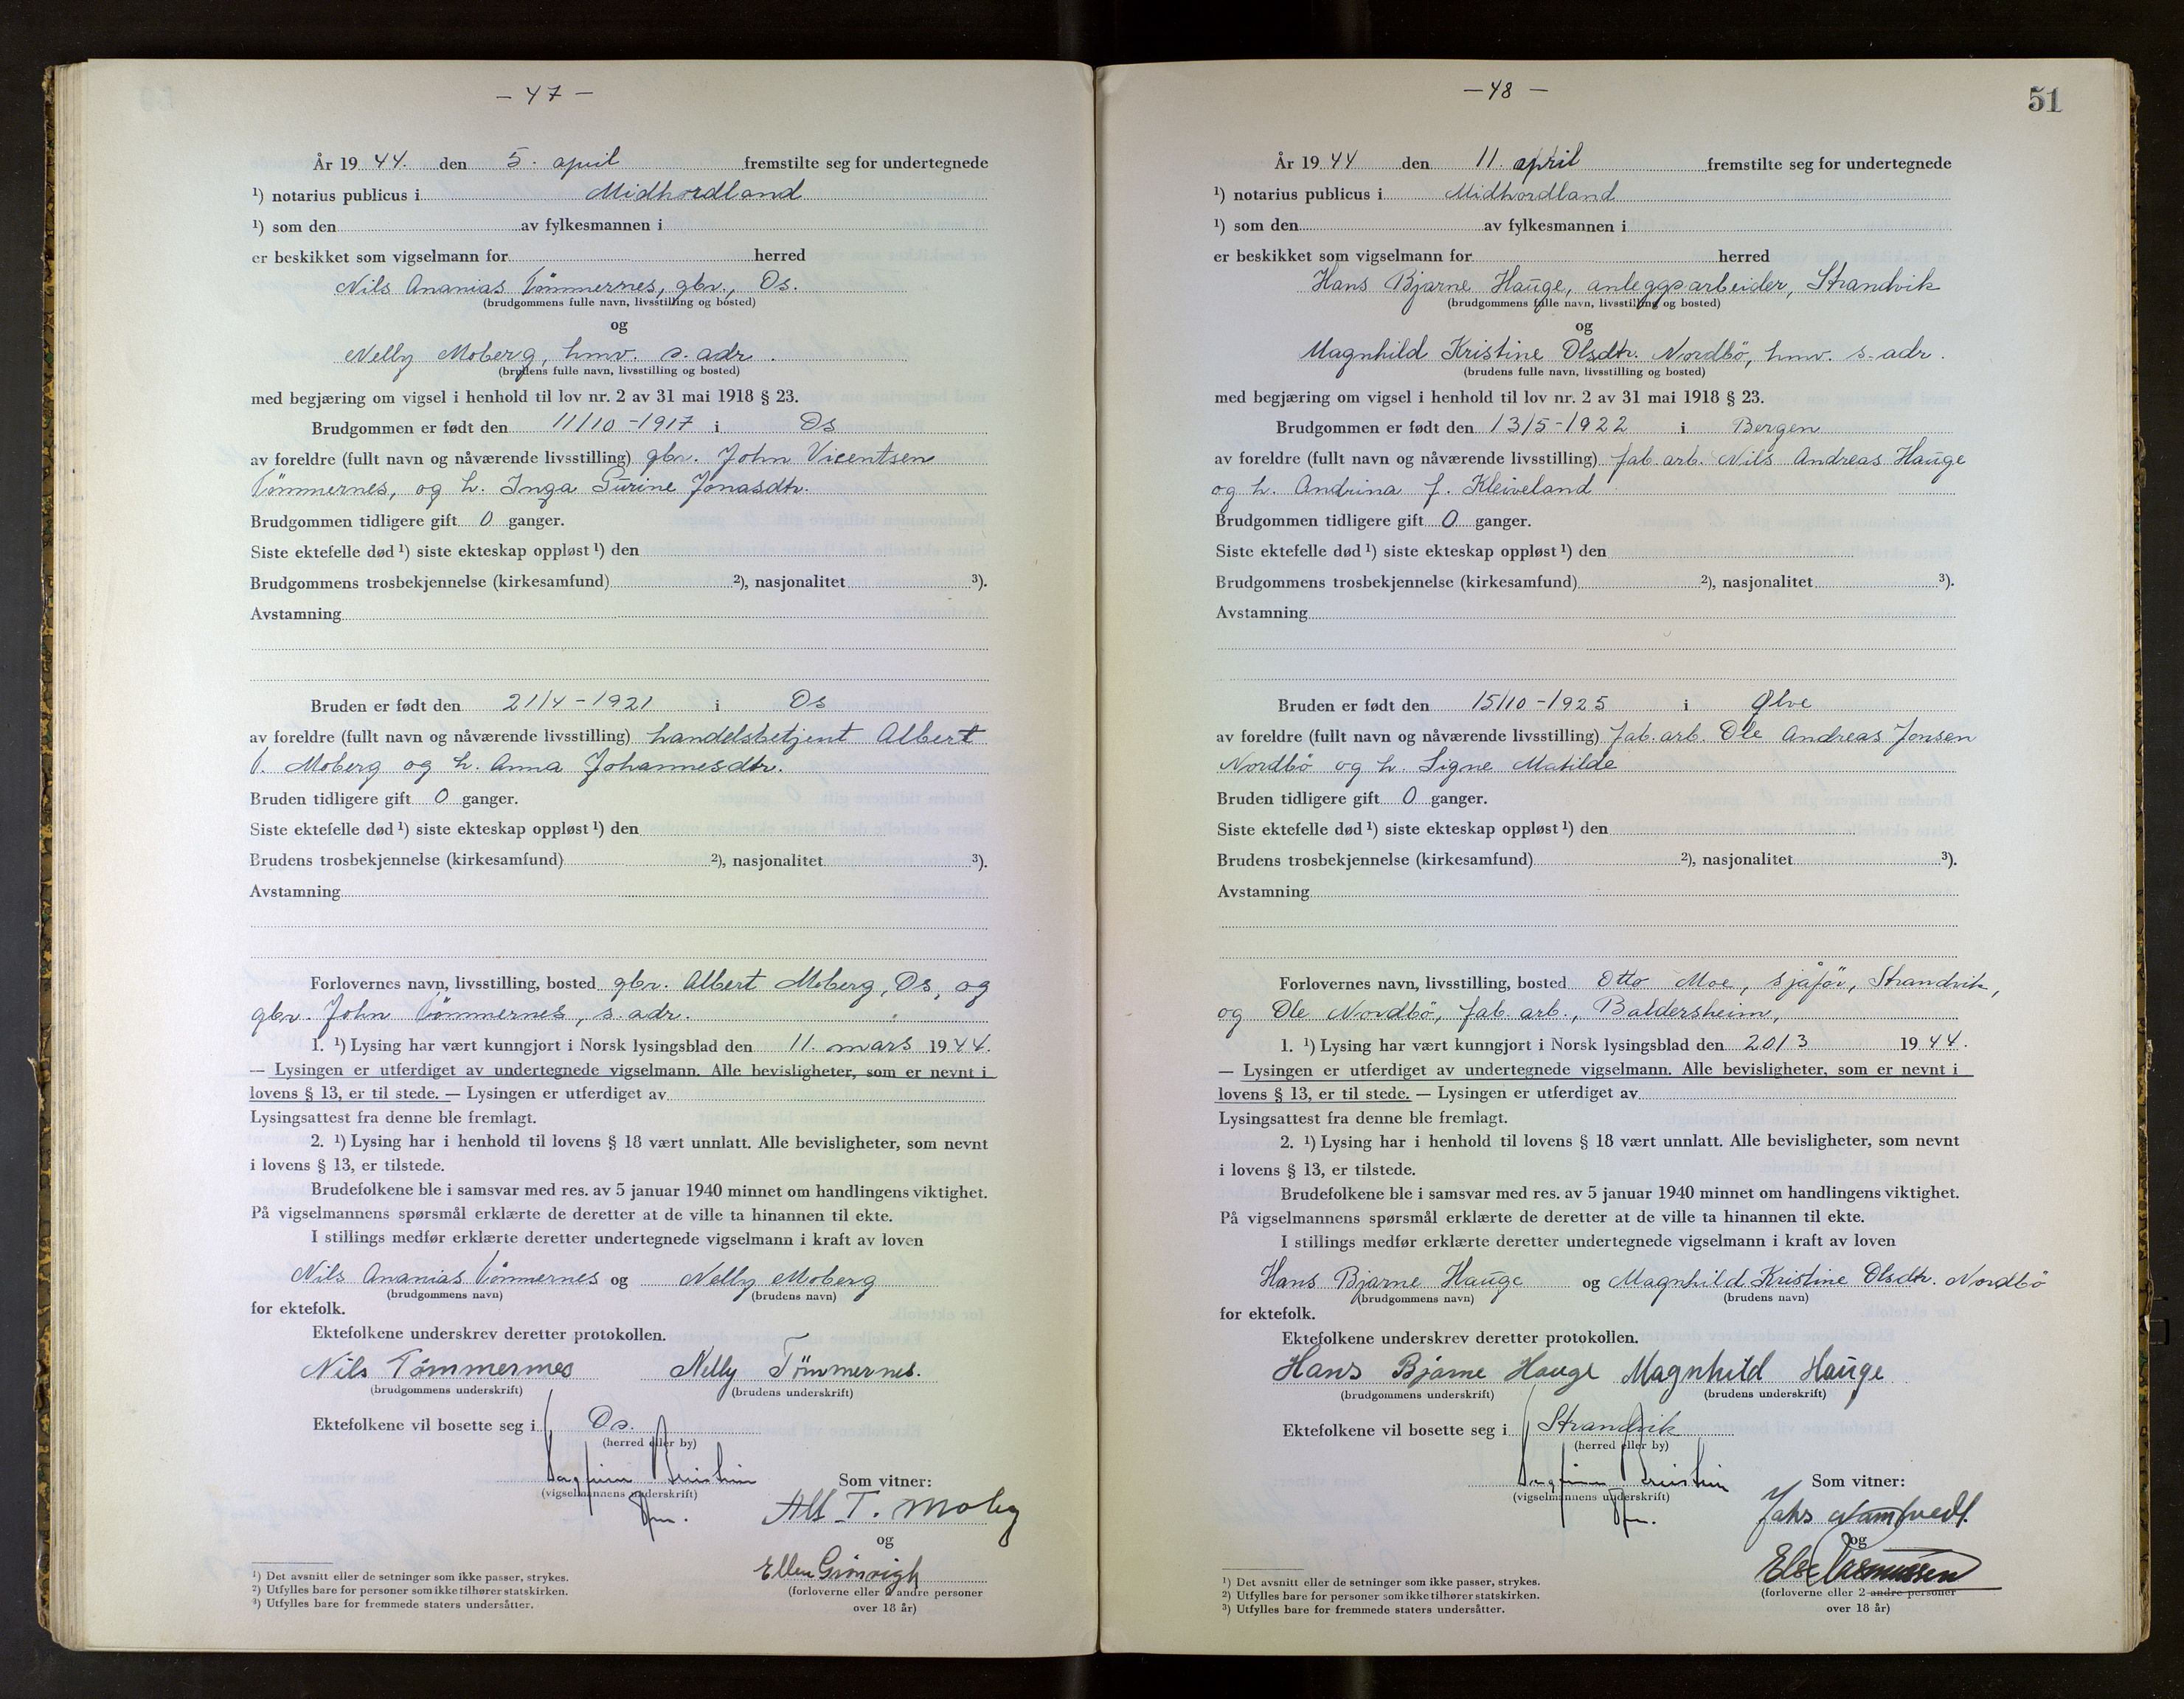 — 47 —
År 19 44. den 5. april fremstilte seg for undertegnede
¹) notarius publicus i Midhordland
¹) som den av fylkesmannen i
er beskikket som vigselmann for herred
Nils Ananias Tömmernes, gbr., Os.
(brudgommens fulle navn, livsstilling og bosted)
og
Nelly Moberg, hmv. s. adr.
(brudens fulle navn, livsstilling og bosted)
med begjæring om vigsel i henhold til lov nr. 2 av 31 mai 1918 § 23.
Brudgommen er født den 11/10 -1917 i Os
av foreldre (fullt navn og nåværende livsstilling) gbr. John Vicentsen
Tömmernes, og h. Inga Gurine Jonasdtr.
Brudgommen tidligere gift 0 ganger.
Siste ektefelle død ¹) siste ekteskap oppløst ¹) den
Brudgommens trosbekjennelse (kirkesamfund) ²), nasjonalitet ³).
Avstamning
Bruden er født den 21/4 - 1921 i Os
av foreldre (fullt navn og nåværende livsstilling) handelsbetjent Albert
T. Moberg og h. Anna Johannesdtr.
Bruden tidligere gift 0 ganger.
Siste ektefelle død ¹) siste ekteskap oppløst ¹) den
Brudens trosbekjennelse (kirkesamfund) ²), nasjonalitet ³).
Avstamning
Forlovernes navn, livsstilling, bosted gbr. Albert Moberg, Os, og
gbr. John Tömmernes, s. adr.
1. ¹) Lysing har vært kunngjort i Norsk lysingsblad den 11. mars 19 44.
— Lysingen er utferdiget av undertegnede vigselmann. Alle bevisligheter, som er nevnt i
lovens § 13, er til stede. — Lysingen er utferdiget av
Lysingsattest fra denne ble fremlagt.
2. ¹) Lysing har i henhold til lovens § 18 vært unnlatt. Alle bevisligheter, som nevnt
i lovens § 13, er tilstede.
Brudefolkene ble i samsvar med res. av 5 januar 1940 minnet om handlingens viktighet.
På vigselmannens spørsmål erklærte de deretter at de ville ta hinannen til ekte.
I stillings medfør erklærte deretter undertegnede vigselmann i kraft av loven
Nils Ananias Tömmernes og Nelly Moberg
(brudgommens navn) (brudens navn)
for ektefolk.
Ektefolkene underskrev deretter protokollen.
Nils Tømmernes Nelly Tömmernes.
(brudgommens underskrift) (brudens underskrift)
Ektefolkene vil bosette seg i Os.
(herred eller by)
Som vitner:
(vigselmannens underskrift)
Alb T. Moberg
og
Ellen Grönvigh
(forloverne eller 2 andre personer
over 18 år)
¹) Det avsnitt eller de setninger som ikke passer, strykes.
²) Utfylles bare for personer som ikke tilhører statskirken.
³) Utfylles bare for fremmede staters undersåtter.
— 48 —
51
År 19 44 den 11. april fremstilte seg for undertegnede
¹) notarius publicus i Midhordland
¹) som den av fylkesmannen i
er beskikket som vigselmann for herred
Hans Bjarne Hauge, anleggsarbeider, Strandvik
(brudgommens fulle navn, livsstilling og bosted)
og
Magnhild Kristine Olsdtr. Nordbö, hmv. s. adr.
(brudens fulle navn, livsstilling og bosted)
med begjæring om vigsel i henhold til lov nr. 2 av 31 mai 1918 § 23.
Brudgommen er født den 13/5-1922 i Bergen
av foreldre (fullt navn og nåværende livsstilling) fab. arb. Nils Andreas Hauge
og h. Andrina f. Kleiveland
Brudgommen tidligere gift 0 ganger.
Siste ektefelle død ¹) siste ekteskap oppløst ¹) den
Brudgommens trosbekjennelse (kirkesamfund) ²), nasjonalitet ³).
Avstamning
Bruden er født den 15/10 -1925 i Ølve
av foreldre (fullt navn og nåværende livsstilling) fab. arb. Ole Andreas Jonsen
Nordbö og h. Signe Matilde
Bruden tidligere gift 0 ganger.
Siste ektefelle død ¹) siste ekteskap oppløst ¹) den
Brudens trosbekjennelse (kirkesamfund) ²), nasjonalitet ³).
Avstamning
Forlovernes navn, livsstilling, bosted Otto Moe, sjåför, Strandvik,
og Ole Nordbö, fab. arb., Baldersheim,
1. ¹) Lysing har vært kunngjort i Norsk lysingsblad den 20/3 19 44.
— Lysingen er utferdiget av undertegnede vigselmann. Alle bevisligheter, som er nevnt i
lovens § 13, er til stede. — Lysingen er utferdiget av
Lysingsattest fra denne ble fremlagt.
2. ¹) Lysing har i henhold til lovens § 18 vært unnlatt. Alle bevisligheter, som nevnt
i lovens § 13, er tilstede.
Brudefolkene ble i samsvar med res. av 5 januar 1940 minnet om handlingens viktighet.
På vigselmannens spørsmål erklærte de deretter at de ville ta hinannen til ekte.
I stillings medfør erklærte deretter undertegnede vigselmann i kraft av loven
Hans Bjarne Hauge og Magnhild Kristine Olsdtr. Nordbö
(brudgommens navn) (brudens navn)
for ektefolk.
Ektefolkene underskrev deretter protokollen.
Hans Bjarne Hauge Magnhild Hauge
(brudgommens underskrift) (brudens underskrift)
Ektefolkene vil bosette seg i Strandvik
(herred eller by)
Som vitner:
(vigselmannens underskrift)
og
Else Rasmussen
(forloverne eller 2 andre personer
over 18 år)
¹) Det avsnitt eller de setninger som ikke passer, strykes.
²) Utfylles bare for personer som ikke tilhører statskirken.
³) Utfylles bare for fremmede staters undersåtter.